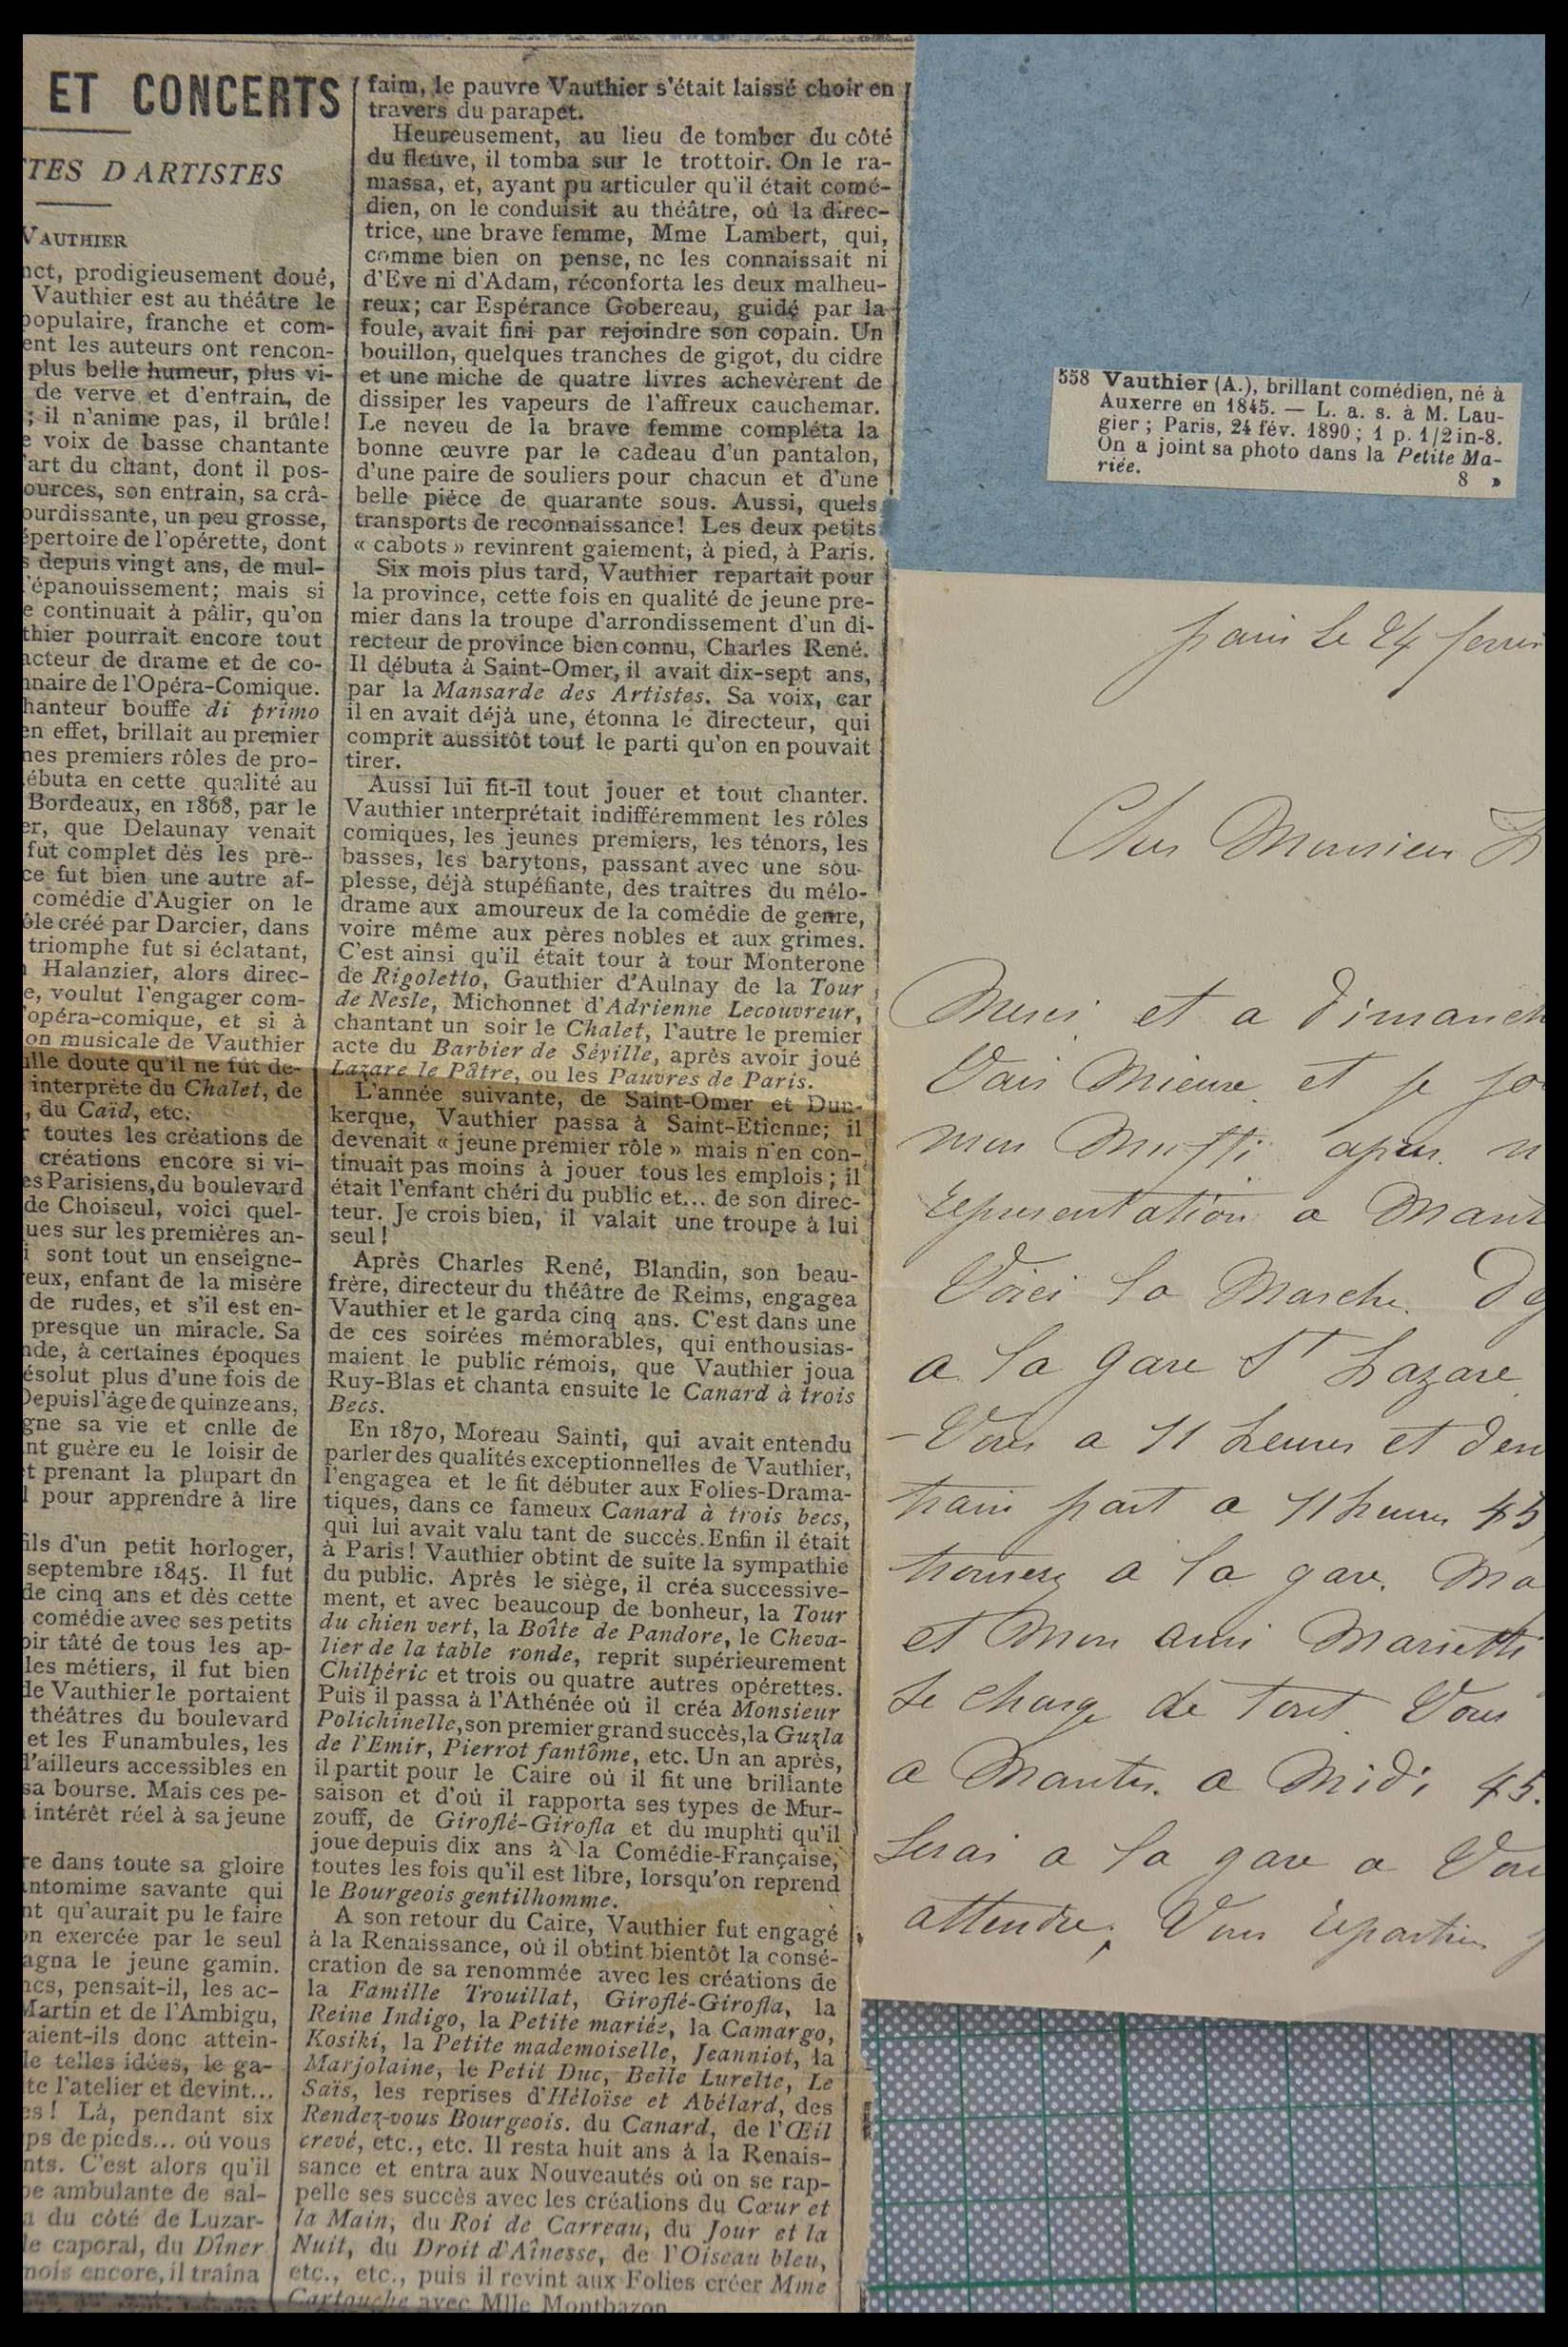 ET CONCERTS
TES D'ARTISTES
VAUTHIER
nct, prodigieusement doué,
Vauthier est au théâtre le
populaire, franche et com-
ent les auteurs ont rencon-
plus belle humeur, plus vi-
de verve et d'entrain, de
; il n'anime pas, il brûle!
e voix de basse chantante
'art du chant, dont il pos-
ources, son entrain, sa crâ-
ourdissante, un peu grosse,
épertoire de l'opérette, dont
s depuis vingt ans, de mul-
'épanouissement; mais si
e continuait à pâlir, qu'on
thier pourrait encore tout
acteur de drame et de co-
nnaire de l'Opéra-Comique.
hanteur bouffe di primo
en effet, brillait au premier
nes premiers rôles de pro-
ébuta en cette qualité au
Bordeaux, en 1868, par le
er, que Delaunay venait
fut complet dès les pre-
ce fut bien une autre af-
comédie d'Augier on le
ôle créé par Darcier, dans
triomphe fut si éclatant,
Halanzier, alors direc-
e, voulut l'engager com-
'opéra-comique, et si à
on musicale de Vauthier
ulle doute qu'il ne fût de-
interprète du Chalet, de
, du Caïd, etc.
r toutes les créations de
créations encore si vi-
es Parisiens, du boulevard
de Choiseul, voici quel-
ues sur les premières an-
i sont tout un enseigne-
eux, enfant de la misère
de rudes, et s'il est en-
presque un miracle. Sa
nde, à certaines époques
ésolut plus d'une fois de
Depuis l'âge de quinze ans,
gne sa vie et cnlle de
nt guère eu le loisir de
t prenant la plupart dn
l pour apprendre à lire
ils d'un petit horloger,
septembre 1845. Il fut
de cinq ans et dès cette
comédie avec ses petits
oir tâté de tous les ap-
les métiers, il fut bien
de Vauthier le portaient
théâtres du boulevard
et les Funambules, les
d'ailleurs accessibles en
sa bourse. Mais ces pe-
intérêt réel à sa jeune
re dans toute sa gloire
antomime savante qui
nt qu'aurait pu le faire
on exercée par le seul
agna le jeune gamin.
ncs, pensait-il, les ac-
Martin et de l'Ambigu,
raient-ils donc attein-
le telles idées, le ga-
te l'atelier et devint...
es! Là, pendant six
ps de pieds... où vous
nts. C'est alors qu'il
pe ambulante de sal-
a du côté de Luzar-
le caporal, du Dîner
mois encore, il traîna
faim, le pauvre Vauthier s'était laissé choir en
travers du parapet.
Heureusement, au lieu de tomber du côté
du fleuve, il tomba sur le trottoir. On le ra-
massa, et, ayant pu articuler qu'il était comé-
dien, on le conduisit au théâtre, où la direc-
trice, une brave femme, Mme Lambert, qui,
comme bien on pense, ne les connaissait ni
d'Eve ni d'Adam, réconforta les deux malheu-
reux; car Espérance Gobereau, guidé par la
foule, avait fini par rejoindre son copain. Un
bouillon, quelques tranches de gigot, du cidre
et une miche de quatre livres achevèrent de
dissiper les vapeurs de l'affreux cauchemar.
Le neveu de la brave femme compléta la
bonne œuvre par le cadeau d'un pantalon,
d'une paire de souliers pour chacun et d'une
belle pièce de quarante sous. Aussi, quels
transports de reconnaissance! Les deux petits
« cabots » revinrent gaiement, à pied, à Paris.
Six mois plus tard, Vauthier repartait pour
la province, cette fois en qualité de jeune pre-
mier dans la troupe d'arrondissement d'un di-
recteur de province bien connu, Charles René.
Il débuta à Saint-Omer, il avait dix-sept ans,
par la Mansarde des Artistes. Sa voix, car
il en avait déjà une, étonna le directeur, qui
comprit aussitôt tout le parti qu'on en pouvait
tirer.
Aussi lui fit-il tout jouer et tout chanter.
Vauthier interprétait indifféremment les rôles
comiques, les jeunes premiers, les ténors, les
basses, les barytons, passant avec une sou-
plesse, déjà stupéfiante, des traîtres du mélo-
drame aux amoureux de la comédie de genre,
voire même aux pères nobles et aux grimes.
C'est ainsi qu'il était tour à tour Monterone
de Rigoletto, Gauthier d'Aulnay de la Tour
de Nesle, Michonnet d'Adrienne Lecouvreur,
chantant un soir le Chalet, l'autre le premier
acte du Barbier de Séville, après avoir joué
Lazare le Pâtre, ou les Pauvres de Paris.
L'année suivante, de Saint-Omer et Dun-
kerque, Vauthier passa à Saint-Etienne; il
devenait « jeune premier rôle » mais n'en con-
tinuait pas moins à jouer tous les emplois; il
était l'enfant chéri du public et... de son direc-
teur. Je crois bien, il valait une troupe à lui
seul!
Après Charles René, Blandin, son beau-
frère, directeur du théâtre de Reims, engagea
Vauthier et le garda cinq ans. C'est dans une
de ces soirées mémorables, qui enthousias-
maient le public rémois, que Vauthier joua
Ruy-Blas et chanta ensuite le Canard à trois
Becs.
En 1870, Moreau Sainti, qui avait entendu
parler des qualités exceptionnelles de Vauthier,
l'engagea et le fit débuter aux Folies-Drama-
tiques, dans ce fameux Canard à trois becs,
qui lui avait valu tant de succès. Enfin il était
à Paris! Vauthier obtint de suite la sympathie
du public. Après le siège, il créa successive-
ment, et avec beaucoup de bonheur, la Tour
du chien vert, la Boîte de Pandore, le Cheva-
lier de la table ronde, reprit supérieurement
Chilpéric et trois ou quatre autres opérettes.
Puis il passa à l'Athénée où il créa Monsieur
Polichinelle, son premier grand succès, la Guzla
de l'Emir, Pierrot fantôme, etc. Un an après,
il partit pour le Caire où il fit une brillante
saison et d'où il rapporta ses types de Mur-
zouff, de Giroflé-Girofla et du muphti qu'il
joue depuis dix ans à la Comédie-Française,
toutes les fois qu'il est libre, lorsqu'on reprend
le Bourgeois gentilhomme.
A son retour du Caire, Vauthier fut engagé
à la Renaissance, où il obtint bientôt la consé-
cration de sa renommée avec les créations de
la Famille Trouillat, Giroflé-Girofla, la
Reine Indigo, la Petite mariée, la Camargo,
Kosiki, la Petite mademoiselle, Jeanniot, la
Marjolaine, le Petit Duc, Belle Lurette, Le
Saïs, les reprises d'Héloïse et Abélard, des
Rendez-vous Bourgeois. du Canard, de l'Œil
crevé, etc., etc. Il resta huit ans à la Renais-
sance et entra aux Nouveautés où on se rap-
pelle ses succès avec les créations du Cœur et
la Main, du Roi de Carreau, du Jour et la
Nuit, du Droit d'Aînesse, de l'Oiseau bleu,
etc., etc., puis il revint aux Folies créer Mme
Cartouche avec Mlle Montbazon
558 Vauthier (A.), brillant comédien, né à
Auxerre en 1845. — L. a. s. à M. Lau-
gier; Paris, 24 fév. 1890; 1 p. 1/2 in-8.
On a joint sa photo dans la Petite Ma-
riée. 8 »
paris le 24
Cher Monsieur
Merci et a dimanch
Vais Mieux et je
mon apres
representation a Mant
Voici la Marche.
a la gare St Lazare
Vous a 11 heures et dem
train part a 11 heures 45
trouverez a la gare. Ma
et Mon ami Marietti
se charge de tout Vous
a Mantes. a Midi 45.
serai a la gare a Vou
attendre, Vous repartirez